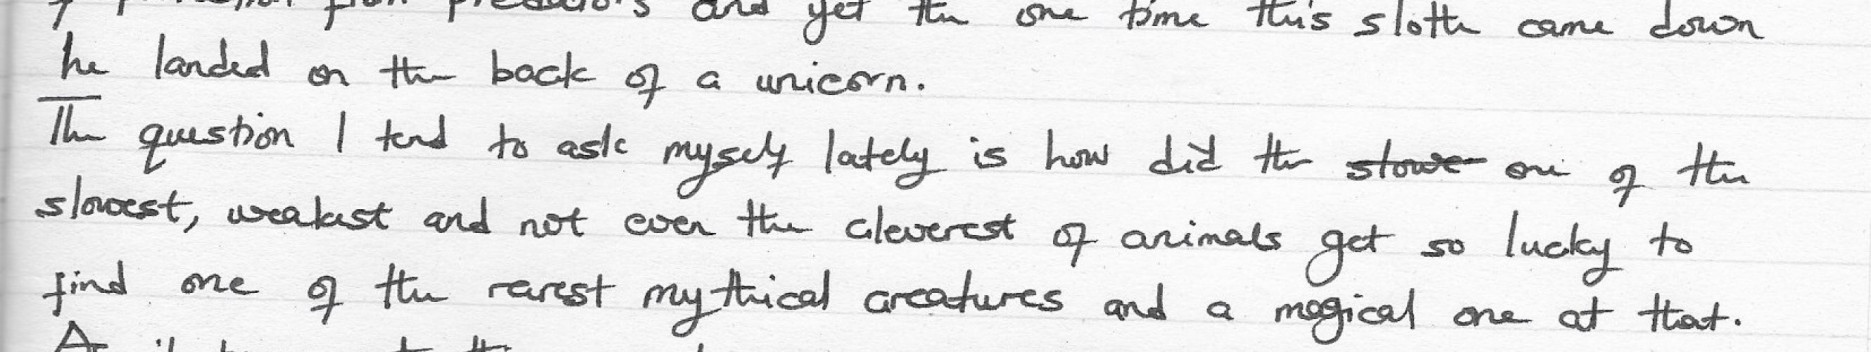 from predators and yet the one time this sloth came down
he landed on the back of a unicorn.
The question I tend to ask myself lately is how did the slowe one of the
slowest, weakest and not even the cleverest of animals get so lucky to
find one of the rarest mythical creatures and a magical one at that.